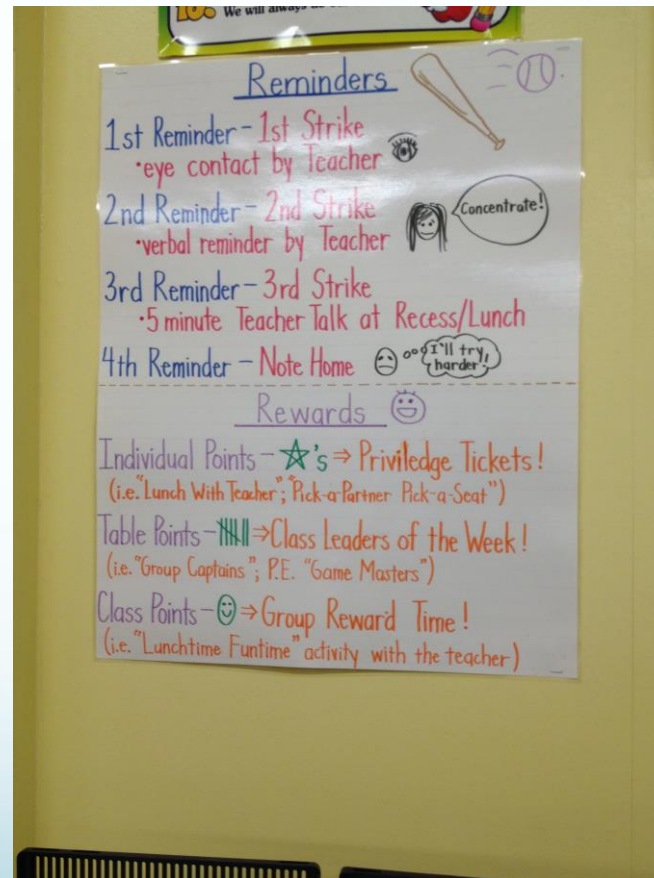 10. We will always
Reminders
1st Reminder - 1st Strike
•eye contact by Teacher
2nd Reminder - 2nd Strike
Concentrate!
•verbal reminder by Teacher
3rd Reminder - 3rd Strike
•5 minute Teacher Talk at Recess/Lunch
4th Reminder - Note Home
I'll try
harder!
Rewards
Individual Points - ☆'s ⇒ Priviledge Tickets!
(i.e. "Lunch With Teacher"; "Pick-a-Partner Pick-a-Seat")
Table Points - ⇒ Class Leaders of the Week!
(i.e. "Group Captains"; P.E. "Game Masters")
Class Points - ☺ ⇒ Group Reward Time!
(i.e. "Lunchtime Funtime" activity with the teacher)